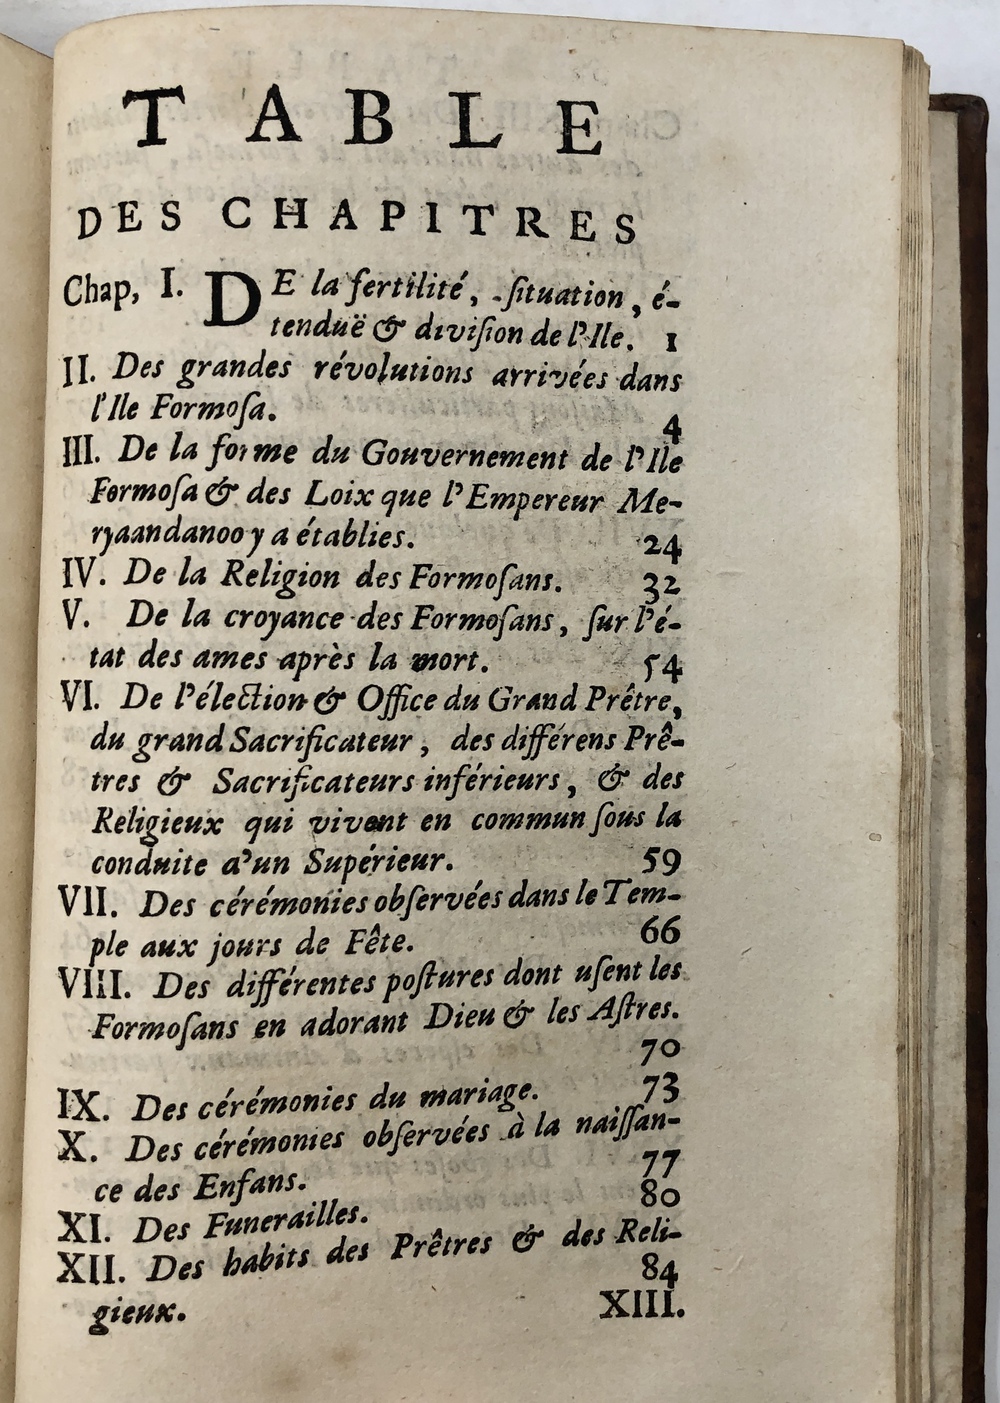 TABLE
DES CHAPITRES
Chap, I. DE la fertilité, ſituation, é-
tenduë & diviſion de l'Ile. 1
II. Des grandes révolutions arrivées dans
l'Ile Formoſa. 4
III. De la forme du Gouvernement de l'Ile
Formoſa & des Loix que l'Empereur Me-
ryaandanoo y a établies. 24
IV. De la Religion des Formoſans. 32
V. De la croyance des Formoſans, ſur l'é-
tat des ames après la mort. 54
VI. De l'élection & Office du Grand Prêtre,
du grand Sacrificateur, des différens Prê-
tres & Sacrificateurs inférieurs, & des
Religieux qui vivent en commun ſous la
conduite d'un Supérieur. 59
VII. Des cérémonies obſervées dans le Tem-
ple aux jours de Fête. 66
VIII. Des différentes poſtures dont uſent les
Formoſans en adorant Dieu & les Aſtres.
70
IX. Des cérémonies du mariage. 73
X. Des cérémonies obſervées à la naiſſan-
ce des Enfans. 77
XI. Des Funerailles. 80
XII. Des habits des Prêtres & des Reli-
gieux. 84
XIII.